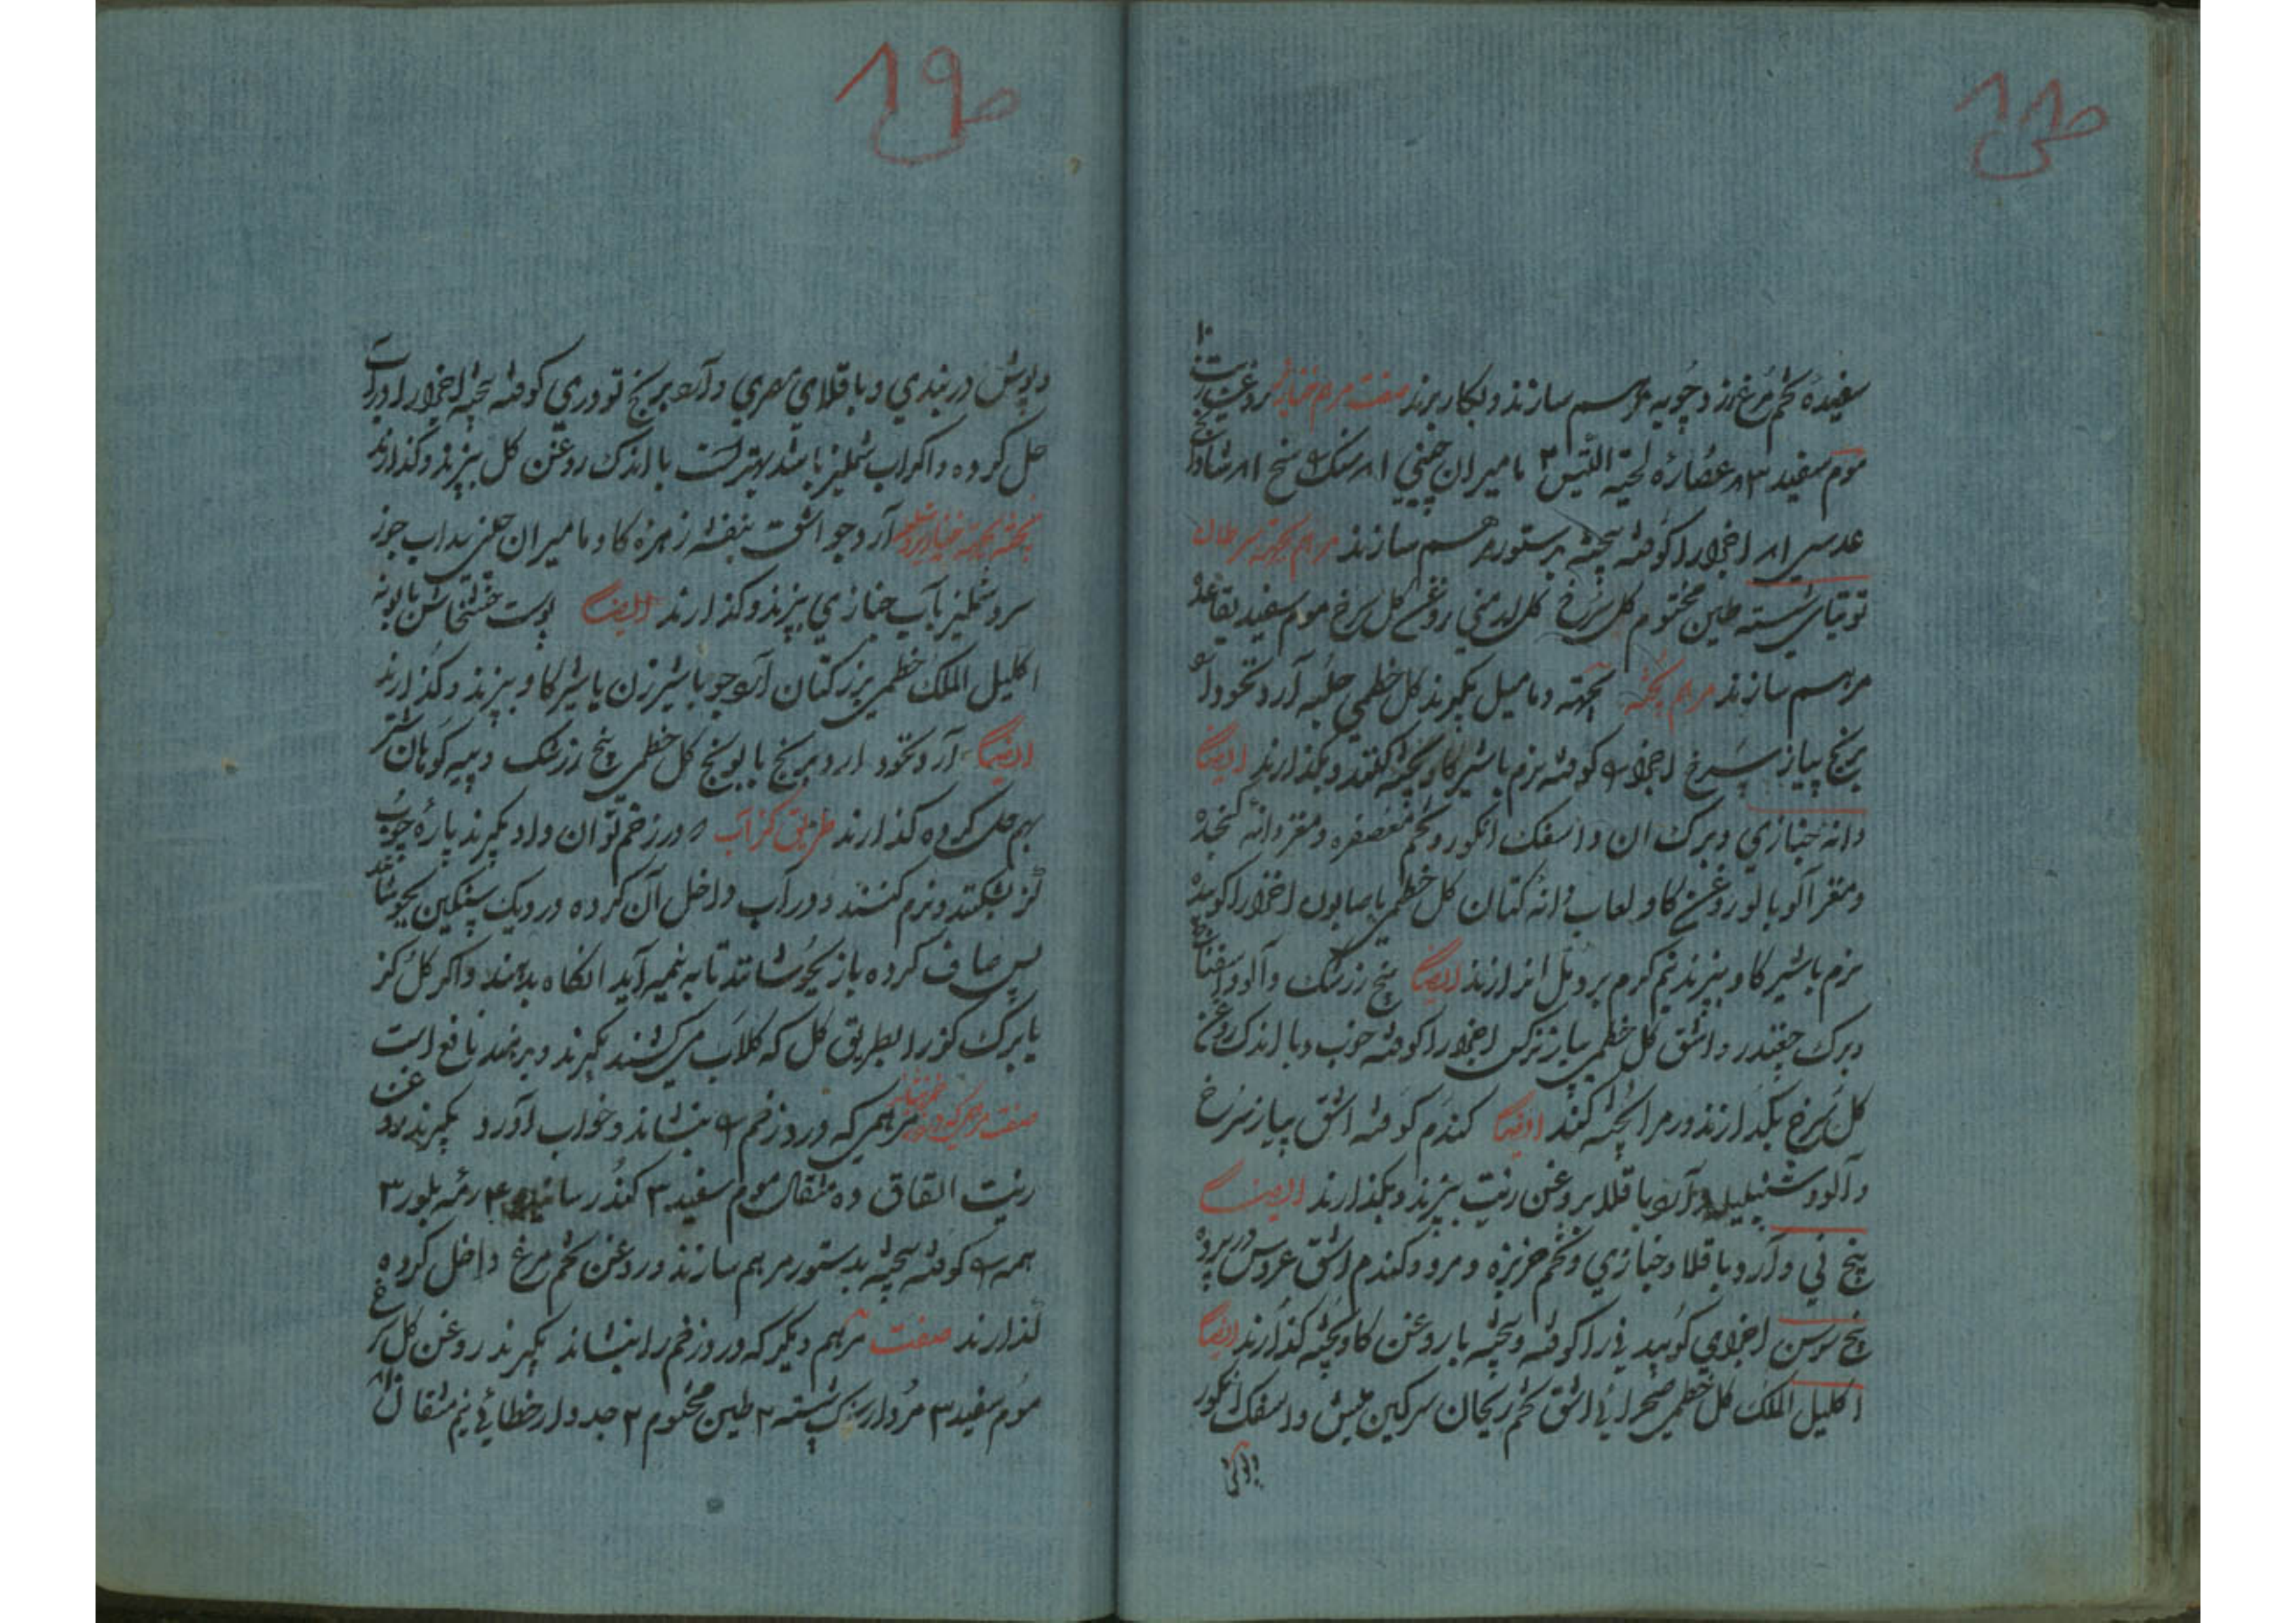 سفیده تخم مرغ زرد چوبه مرهم سازند و بکار برند صفت مرهم خنازیر روغن زیت ۱۰
موم سفید ۳ عصاره لحیة التیس ۲ مامیران چینی سنک شادنج
عدسی اجزا را کوفته بیخته بدستور مرهم سازند مرهم بجهة سرطان
توتیای شسته طین مختوم کل سرخ کل ارمنی روغن کل سرخ موم سفید بقاعده
مرهم سازند مرهم پخته بجهته دمامیل بکیرند کل خطمی حلبه آرد نخود آرد
برنج پیاز سرخ اجزا کوفته نرم باشیر کاو پخته کنند و بکذارند ایضا
دانه خبازی و برک ان و اسفک انکور و تخم معصفره و مغز دانه کنجده
و مغز آلوبالو روغن کاو لعاب دانه کتان کل خطمی باصابون اجزا را کوبیده
نرم باشیر کاو بپزند نیم کرم بر دمل اندازند ایضا بیخ زرشک و آلو و اسفناخ
و برک چغندر و اشق کل خطمی پیاز نرکس اجزا را کوفته خوب و با اندک روغن
کل سرخ بکدازند و مر ا پخته کند ایضا کندم کوفته اشق پیاز سرخ
و آلو و شنبلیله و آرد باقلا بروغن زیت بپزند و بکذارند ایضا
بیخ نی و آرد باقلا و خبازی و تخم خربزه و مرو و کندم اشق عروس در پرده
بیخ سوسن اجزای کوبیدنی را کوفته و بیخته با روغن کاو پخته کذارند ایضا
اکلیل الملک کل خطمی صحرائی اشق تخم ریحان سرکین میش و اسفک انکور
و پوش
و پوش دربندی و باقلای مصری و آرد برنج تودری کوفته بیخته اجزا را در آب
حل کرده و اکر اب شملیز باشد بهتر است با اندک روغن کل بپزند و کذارند
پخته بجهته خنازیر آرد جو اشق بنفشه زهره کاو مامیران اب جوز
سرو شملیز بآب خبازی بپزند و کذارند ایضا پوست خشخاش بابونه
اکلیل الملک خطمی بزر کتان آرد جو باشیر زن یا شیر کاو بپزند و کذارند
ایضا آرد نخود ارد برنج بابونج کل خطمی بیخ زرشک و پیه کوهان شتر
بهم حل کرده کذارند طریق کزآب در زخم توان داد بکیرند پاره چوب
کز بشکنند و نرم کنند و در آب داخل آن کرده در دیک سنکین بجوشانند
پس صاف کرده باز بجوشانند تا به نیمه آید انکاه بدهند و اکر کل کز
یا برک کز را بطریق کل که کلاب میکشند بکیرند و بدهند نافع است
صفت مرهمی که درد زخم بنشاند مرهمی که درد زخم بنشاند و خواب آورد بکیرند روغن
زیت القاق ده مثقال موم سفید ۳ کندر سائیده ۴ رمه بلور ۳
همه کوفته بیخته بدستور مرهم سازند و روغن تخم مرغ داخل کرده
کذارند صفت مرهم دیکر که درد زخم را بنشاند بکیرند روغن کل سرخ
موم سفید ۳ مردارسنک شسته ۲ طین مختوم ۲ جدوار خطائی نیم مثقال